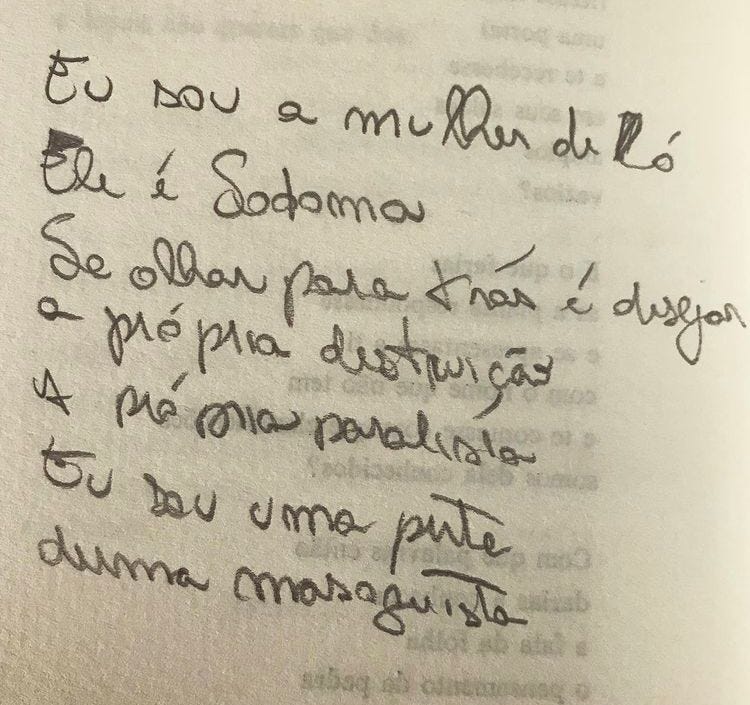 Eu sou a mulher de Ló
Ele é Sodoma
Se olhar para trás é desejar
a própria destruição
A própria paralisia
Eu sou uma puta
duma masoquista